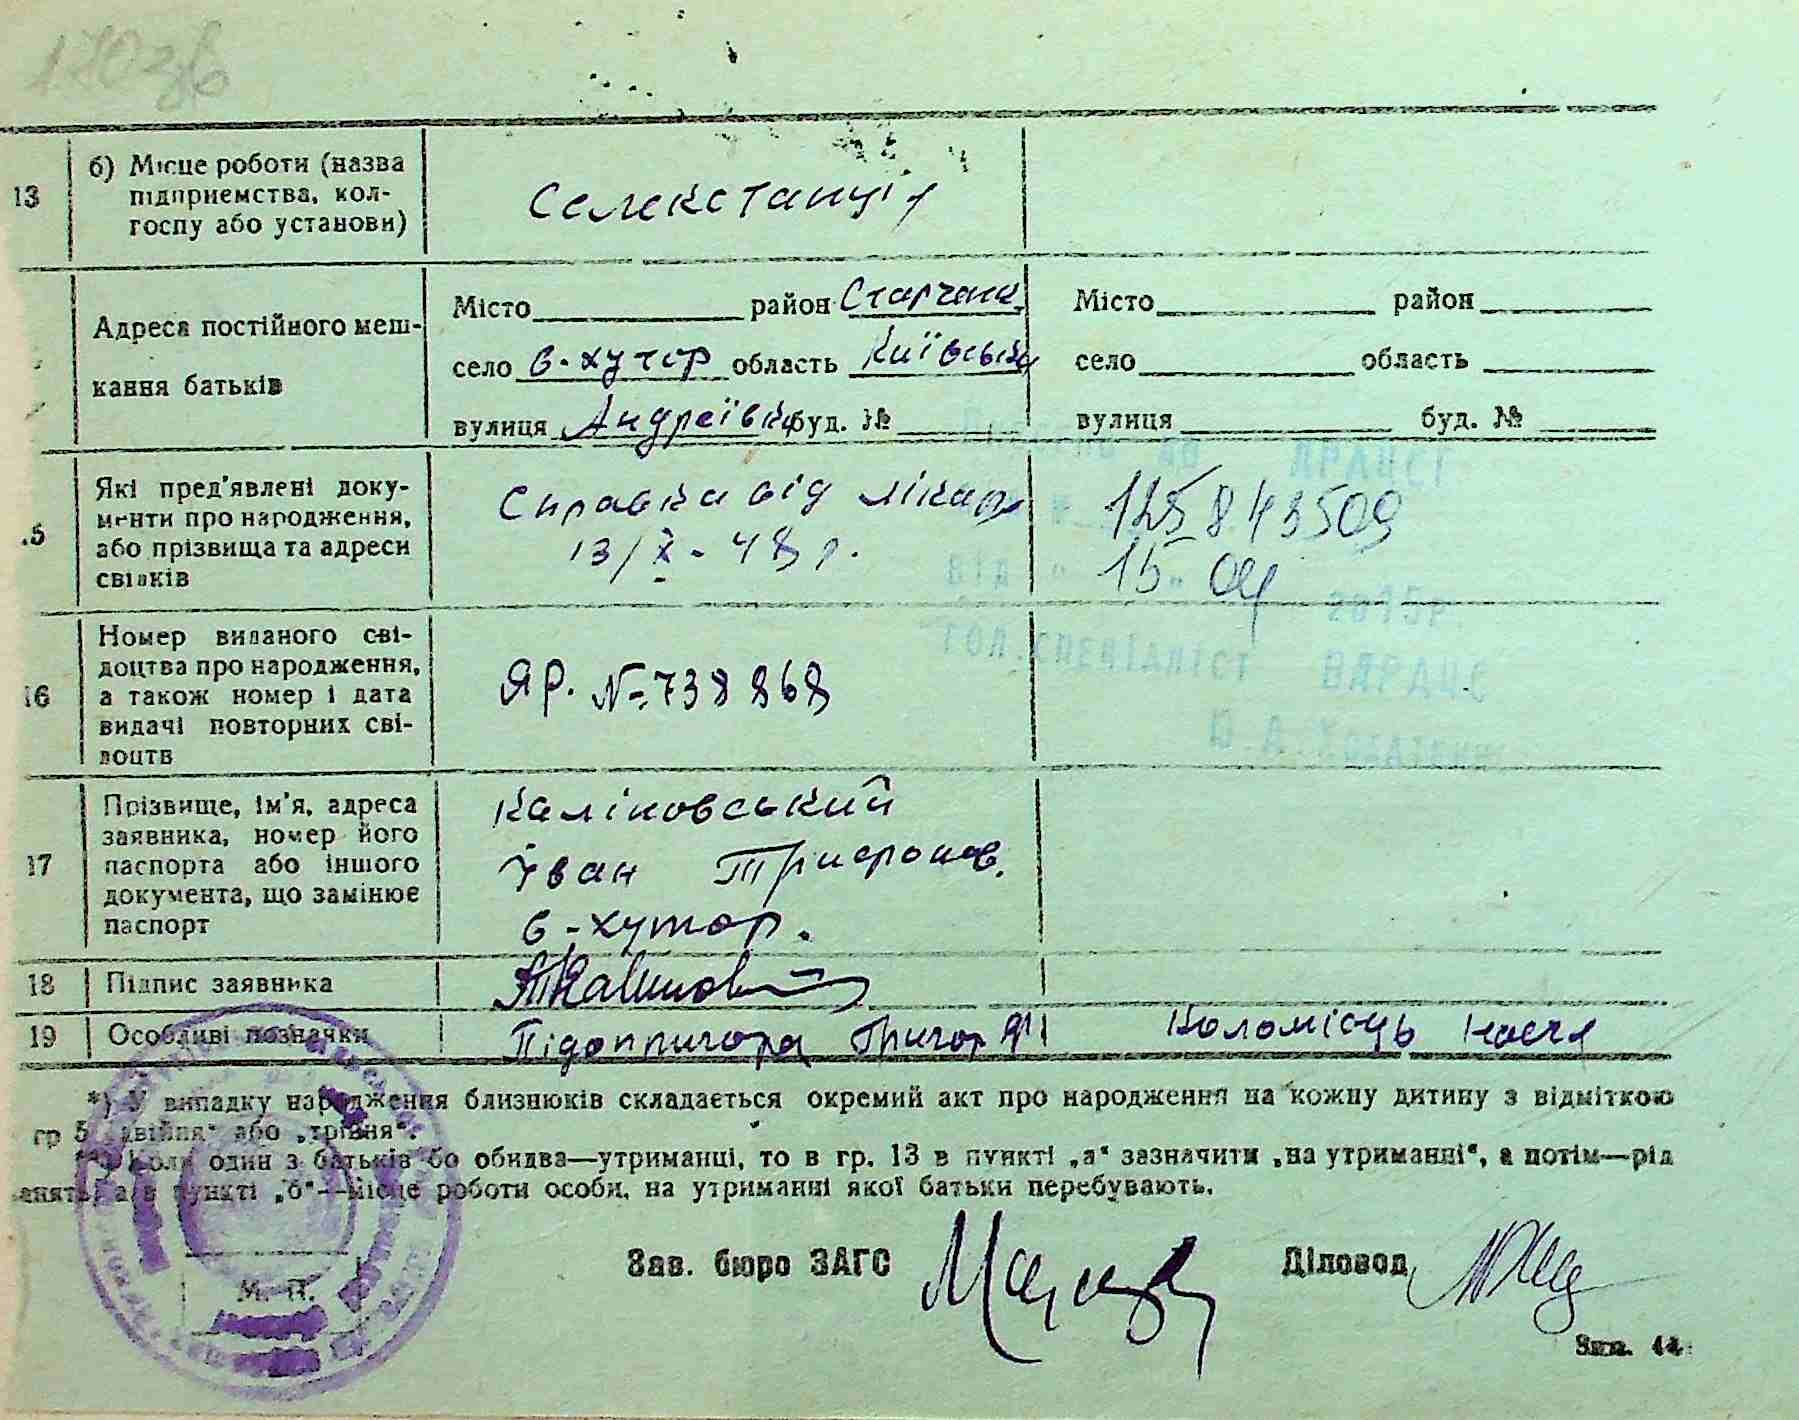 170зв
13
б) Місце роботи (назва
підприємства, кол-
госпу або установи)
Селекстанція
Адреса постійного меш-
кання батьків
Місто район Старченк.
село в-хутор область Київськ
вулиця Андреївка буд. №
Місто район
село область
вулиця буд. №
.5
Які пред'явлені доку-
менти про народження,
або прізвища та адреси
свідків
Справка від лікаря
13/X - 48 р.
125843509
15 04
від " " 2015р.
гол.спеціаліст ВДРАЦС
16
Номер виданого сві-
доцтва про народження,
а також номер і дата
видачі повторних сві-
доцтв
ЯР. № 738868
17
Прізвище, ім'я, адреса
заявника, номер його
паспорта або іншого
документа, що замінює
паспорт
Каліновський
Іван Трифонов.
в-хутор.
18
Підпис заявника
19
Особливі позначки
Підоппригора Григорій Коломієць Настя
*) У випадку народження близнюків складається окремий акт про народження на кожну дитину з відміткою
гр 5 „двійня" або „трійня".
Коли один з батьків бо обидва—утриманці, то в гр. 13 в пункті „а" зазначити „на утриманні", а потім—рід
анять, а в пункті „б"—місце роботи особи, на утриманні якої батьки перебувають.
М. П.
Зав. бюро ЗАГС Діловод
Зам. 44